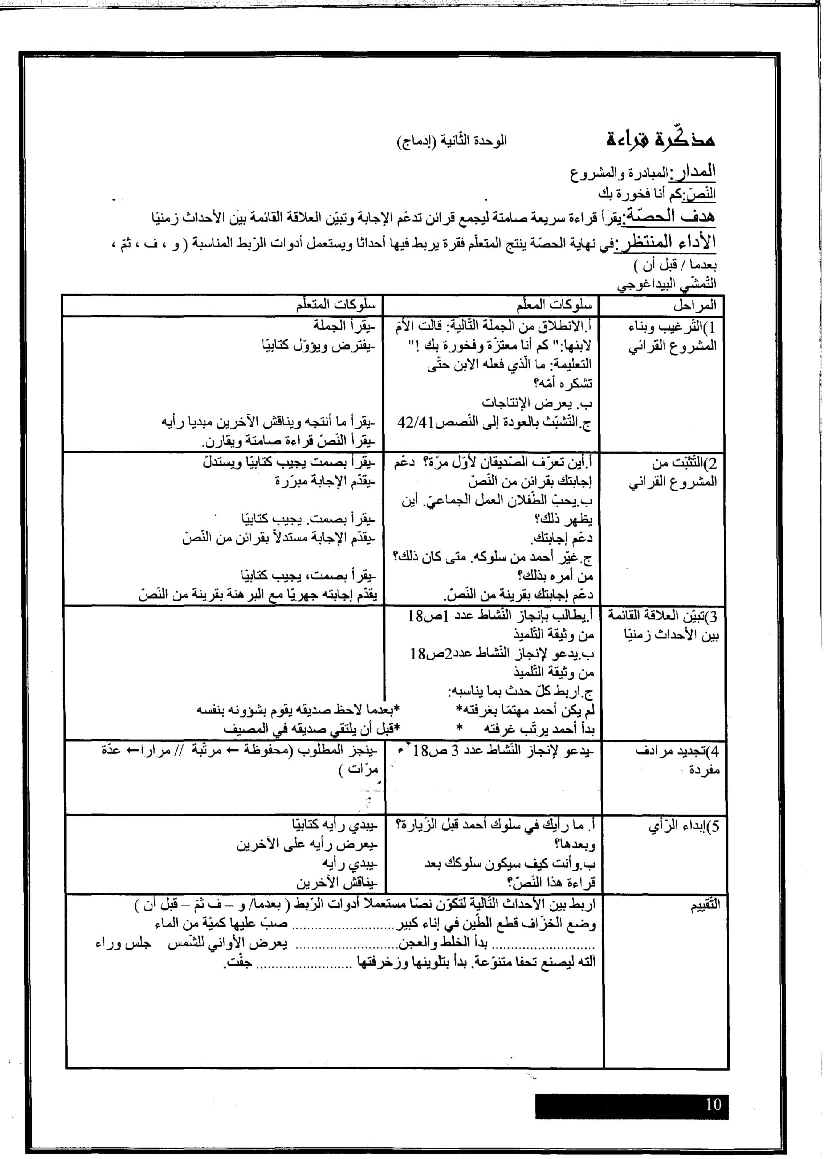 مذكّرة قراءة الوحدة الثّانية (إدماج)
المدار:المبادرة والمشروع
النّصّ:كم أنا فخورة بك
هدف الحصّة:يقرأ قراءة سريعة صامتة ليجمع قرائن تدعّم الإجابة وتبيّن العلاقة القائمة بين الأحداث زمنيّا
الأداء المنتظر:في نهاية الحصّة ينتج المتعلّم فقرة يربط فيها أحداثا ويستعمل أدوات الرّبط المناسبة ( و ، ف ، ثمّ ،
بعدما / قبل أن )
التّمشّي البيداغوجي
المراحل
سلوكات المعلّم
سلوكات المتعلّم
1)التّرغيب وبناء
المشروع القرائي
أ.الانطلاق من الجملة التّالية: قالت الأمّ
لابنها:" كم أنا معتزّة وفخورة بك !"
التعليمة: ما الّذي فعله الابن حتّى
تشكره أمّه؟
ب. يعرض الإنتاجات
ج.التّشبّث بالعودة إلى النّصص42/41
-يقرأ الجملة
-يفترض ويؤوّل كتابيّا
-يقرأ ما أنتجه ويناقش الآخرين مبديا رأيه
-يقرأ النّصّ قراءة صامتة ويقارن.
2)التّثبّت من
المشروع القرائي
أ.أين تعرّف الصّديقان لأوّل مرّة؟ دعّم
إجابتك بقرائن من النّصّ
ب.يحبّ الطّفلان العمل الجماعيّ. أين
يظهر ذلك؟
دعّم إجابتك.
ج.غيّر أحمد من سلوكه. متى كان ذلك؟
من أمره بذلك؟
دعّم إجابتك بقرينة من النّصّ.
-يقرأ بصمت يجيب كتابيّا ويستدلّ
-يقدّم الإجابة مبرّرة
-يقرأ بصمت. يجيب كتابيّا
-يقدّم الإجابة مستدلاّ بقرائن من النّصّ
-يقرأ بصمت، يجيب كتابيّا
يقدّم إجابته جهريّا مع البرهنة بقرينة من النّصّ
3)تبيّن العلاقة القائمة
بين الأحداث زمنيّا
أ.يطالب بإنجاز النّشاط عدد 1ص18
من وثيقة التّلميذ
ب.يدعو لإنجاز النّشاط عدد2ص18
من وثيقة التّلميذ
ج.اربط كلّ حدث بما يناسبه:
لم يكن أحمد مهتمّا بغرفته* *بعدما لاحظ صديقه يقوم بشؤونه بنفسه
بدأ أحمد يرتّب غرفته * *قبل أن يلتقي صديقه في المصيف
4)تجديد مرادف
مفردة
-يدعو لإنجاز النّشاط عدد 3 ص18
-ينجز المطلوب (محفوظة ← مرتّبة // مرارا← عدّة
مرّات )
5)إبداء الرّأي
أ. ما رأيك في سلوك أحمد قبل الزّيارة؟
وبعدها؟
ب.وأنت كيف سيكون سلوكك بعد
قراءة هذا النّصّ؟
-يبدي رأيه كتابيّا
-يعرض رأيه على الآخرين
-يبدي رأيه
-يناقش الآخرين
التّقييم
اربط بين الأحداث التّالية لتكوّن نصّا مستعملا أدوات الرّبط ( بعدما/ و – ف ثمّ – قبل أن )
وضع الخزّاف قطع الطّين في إناء كبير.......................... صبّ عليها كميّة من الماء
.......................... بدأ الخلط والعجن.......................... يعرض الأواني للشّمس جلس وراء
آلته ليصنع تحفا متنوّعة. بدأ بتلوينها وزخرفتها ........................ جفّت.
10